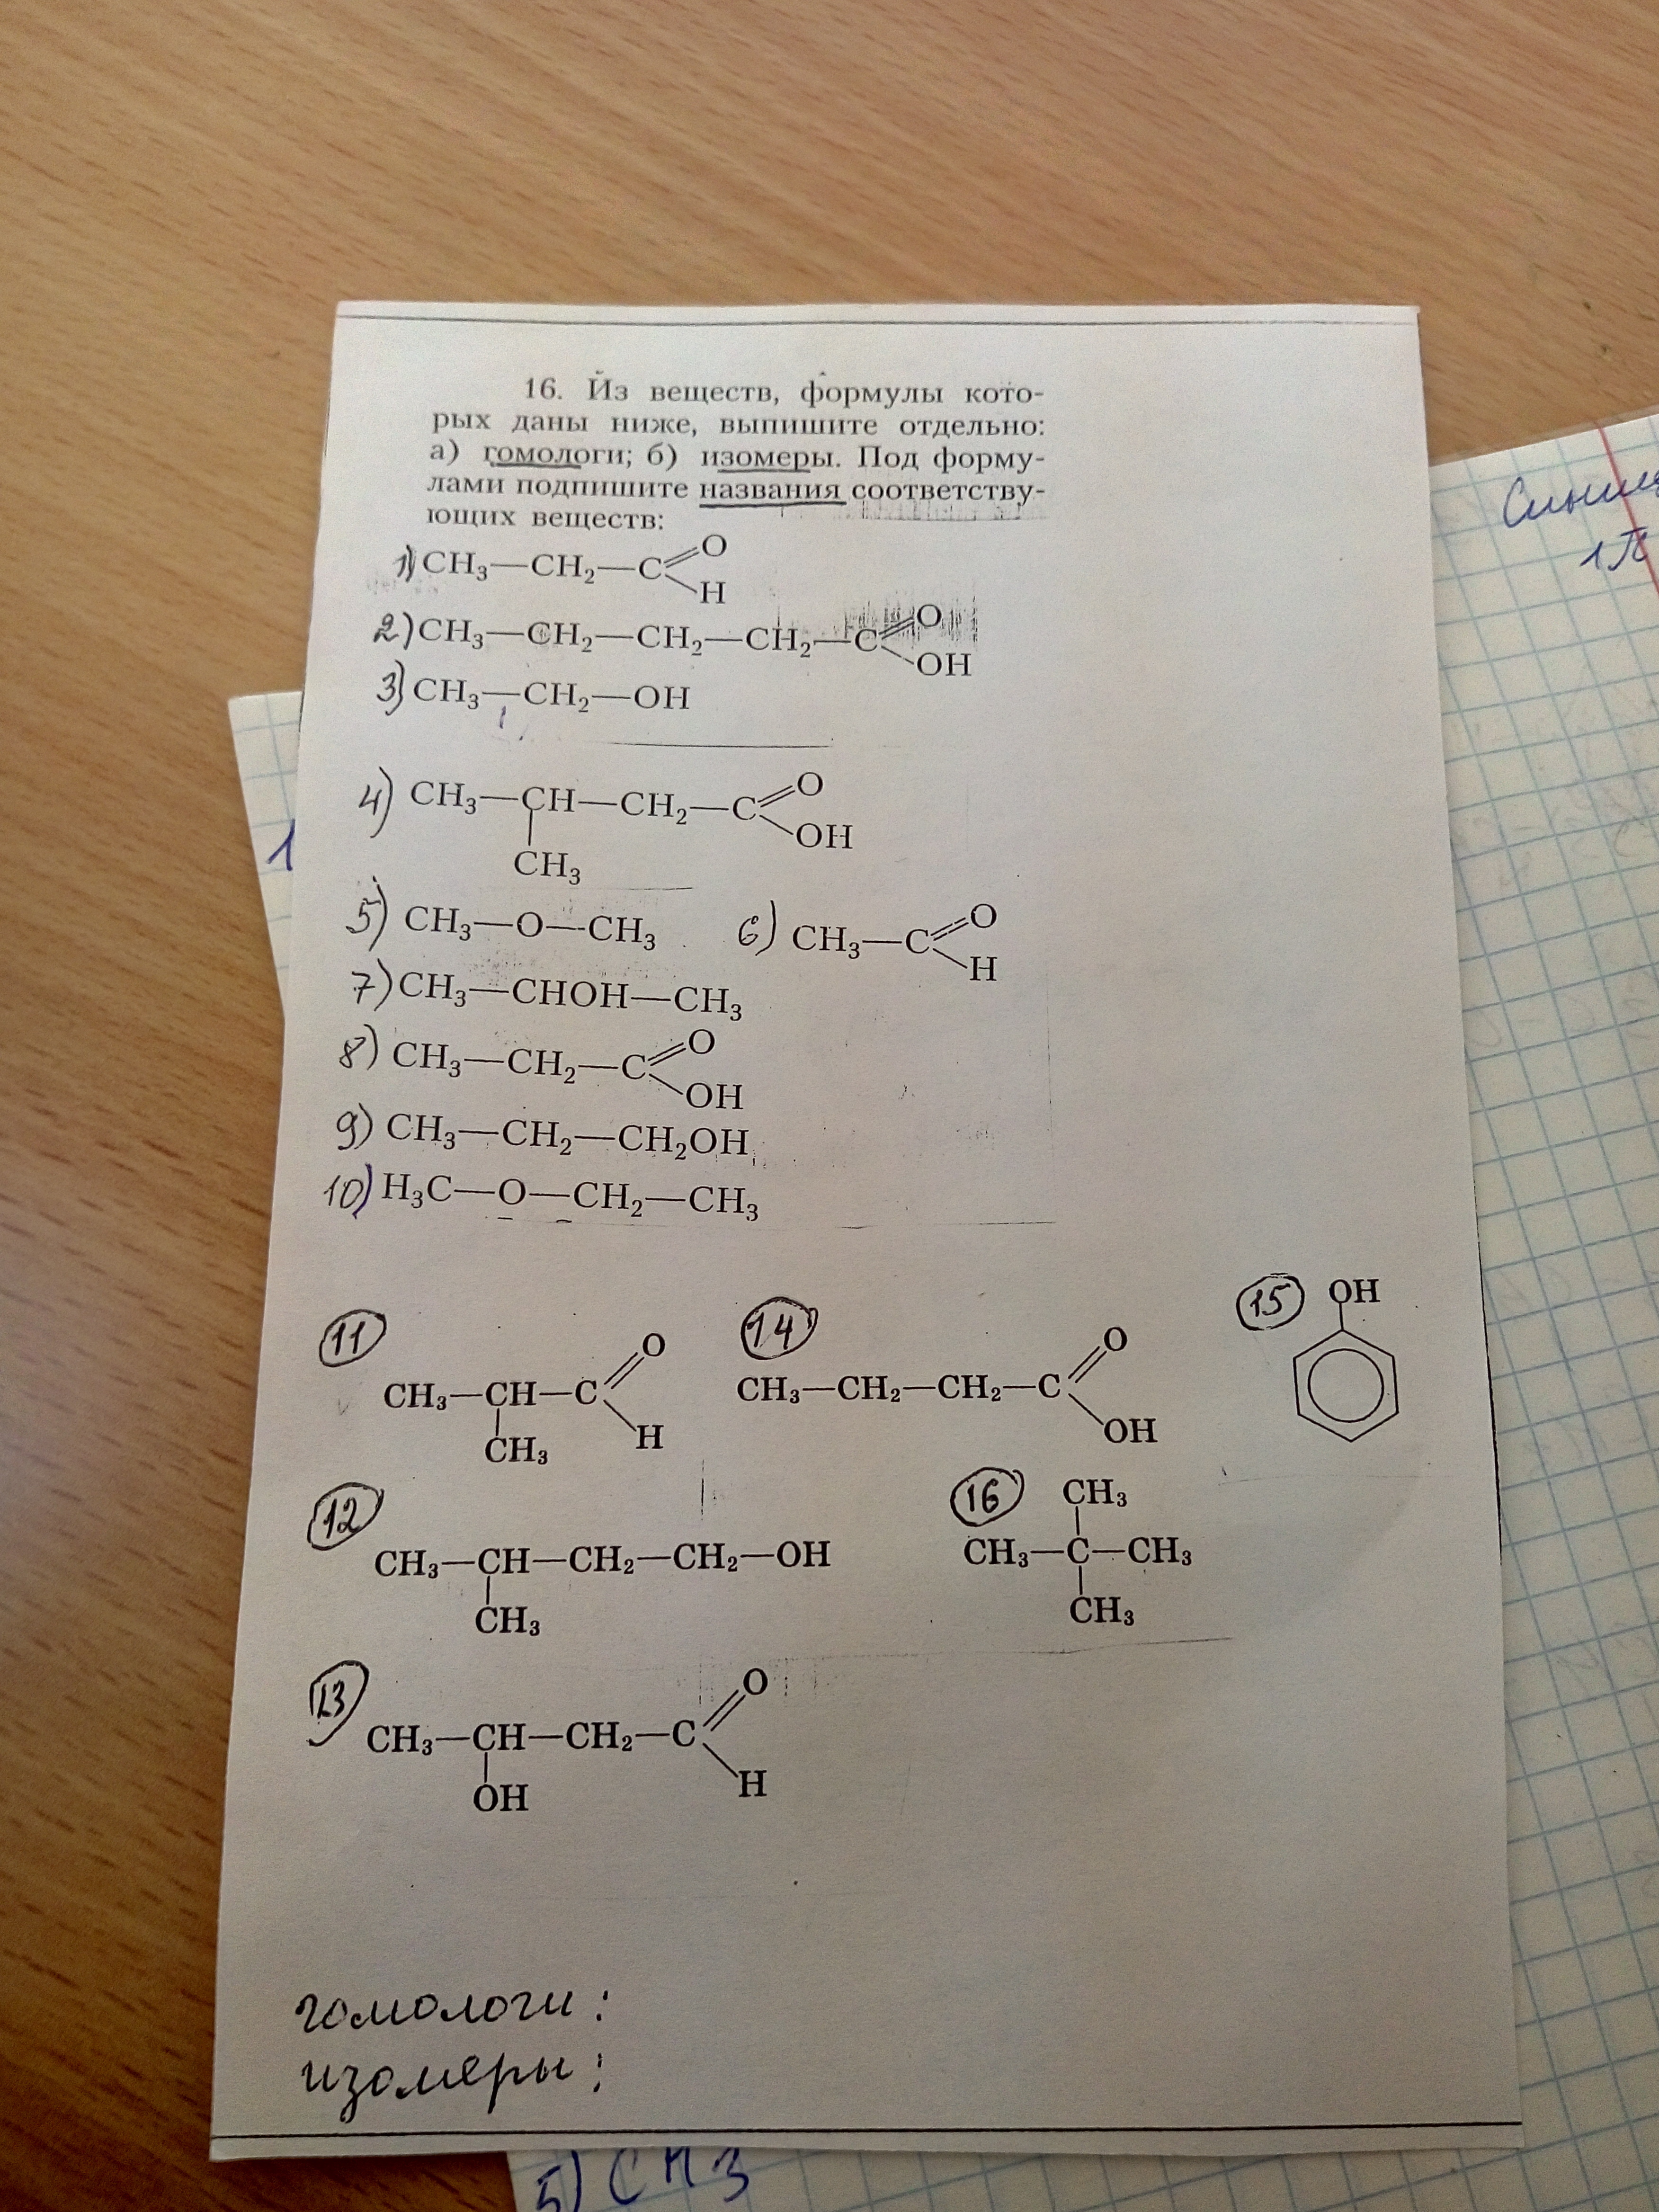 16. Из веществ, формулы кото-
рых даны ниже, выпишите отдельно:
а) гомологи; б) изомеры. Под форму-
лами подпишите названия соответству-
ющих веществ:
1) CH₃—CH₂—C
O
H
2) CH₃—CH₂—CH₂—CH₂—C
O
OH
3) CH₃—CH₂—OH
4) CH₃—CH—CH₂—C
O
OH
CH₃
5) CH₃—O—CH₃
6) CH₃—C
O
H
7) CH₃—CHOH—CH₃
8) CH₃—CH₂—C
O
OH
9) CH₃—CH₂—CH₂OH
10) H₃C—O—CH₂—CH₃
11
CH₃—CH—C
O
H
CH₃
14
CH₃—CH₂—CH₂—C
O
OH
15
OH
12
CH₃—CH—CH₂—CH₂—OH
CH₃
16
CH₃
CH₃—C—CH₃
CH₃
13
CH₃—CH—CH₂—C
O
H
OH
гомологи:
изомеры:
1
5) CH3